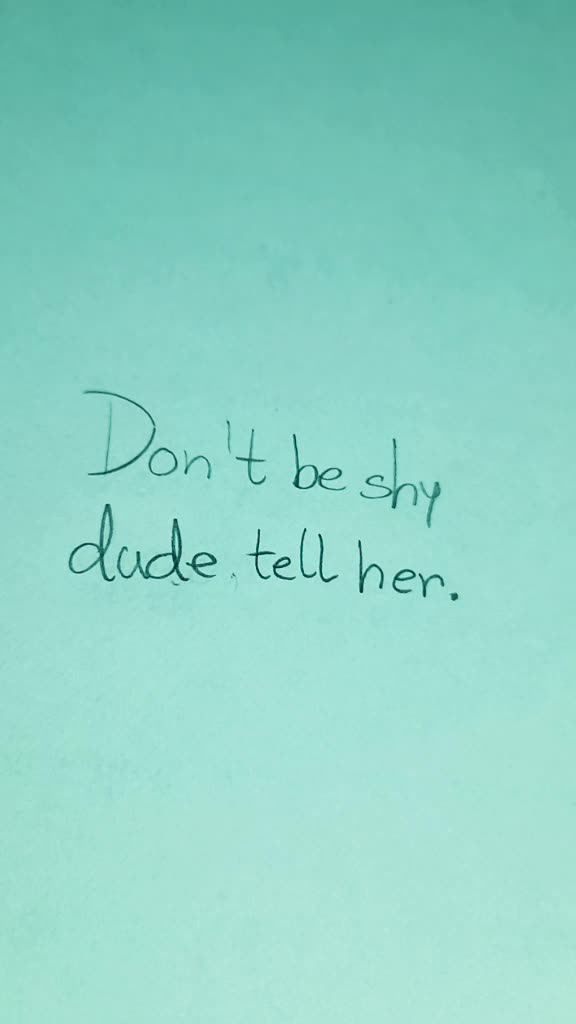 Don't be shy
dude. tell her.